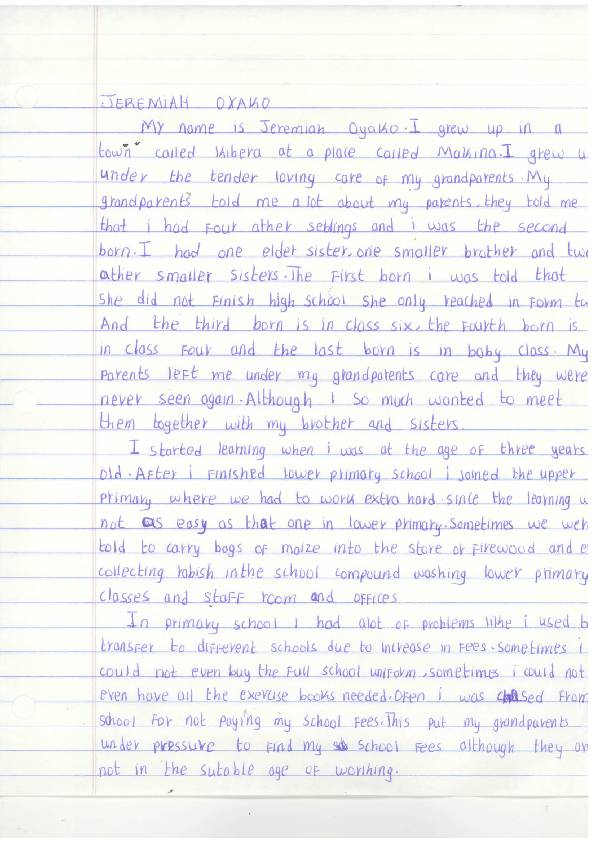 JEREMIAH OYAKO
My name is Jeremiah Oyako. I grew up in a
town called Kibera at a place called Makina. I grew u
under the tender loving care of my grandparents. My
grandparents told me a lot about my parents. they told me
that i had four ather seblings and i was the second
born. I had one elder sister, one smaller brother and two
ather smaller sisters. The first born i was told that
she did not finish high school she only reached in form tw
And the third born is in class six, the fourth born is
in class four and the last born is in baby class. My
parents left me under my grandparents care and they were
never seen again. Although I so much wanted to meet
them together with my brother and sisters.
I started learning when i was at the age of three years
old. After i finished lower primary school i joined the upper
primary where we had to work extra hard since the learning w
not as easy as that one in lower primary. Sometimes we wer
told to carry bags of maize into the store or firewood and e
collecting rabish in the school compound washing lower primary
classes and staff room and offices
In primary school I had alot of problems like i used t
transfer to different schools due to increase in fees. Sometimes i
could not even buy the full school uniform, sometimes i could not
even have all the exercise books needed. Ofen i was chased from
school for not paying my school fees. This put my grandparents
under pressure to find my school fees although they ar
not in the sutable age of working.